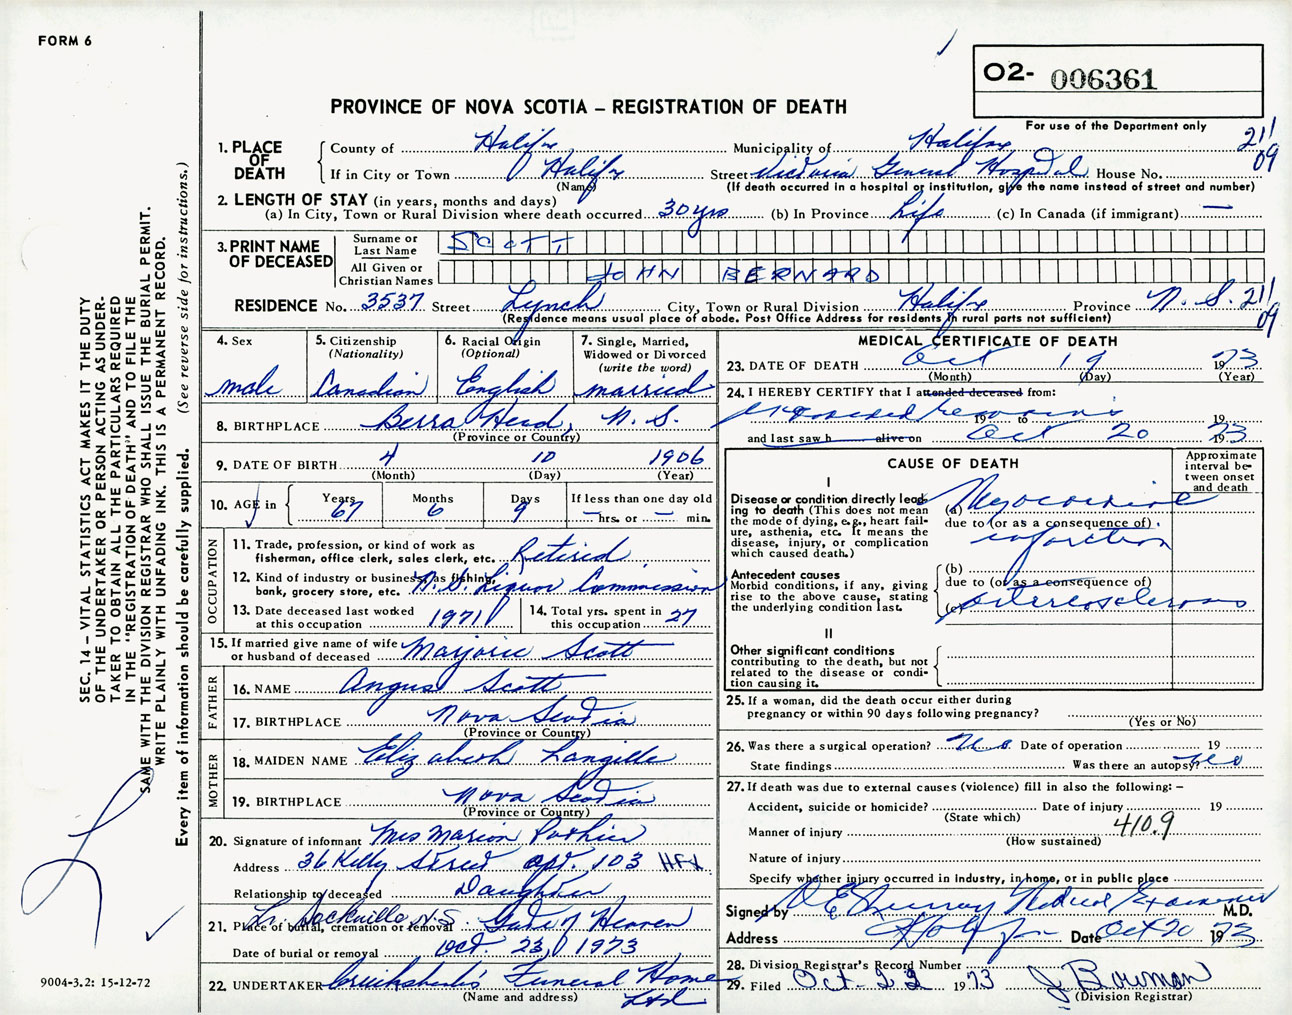 FORM 6
O2- 006361
PROVINCE OF NOVA SCOTIA – REGISTRATION OF DEATH
For use of the Department only
1. PLACE OF DEATH
County of Halifax Municipality of Halifax 211
If in City or Town Halifax Street Victoria General Hospital House No. 09
(Name) (If death occurred in a hospital or institution, give the name instead of street and number)
2. LENGTH OF STAY (in years, months and days)
(a) In City, Town or Rural Division where death occurred 30 yrs (b) In Province Life (c) In Canada (if immigrant) —
3. PRINT NAME OF DECEASED
Surname or Last Name SCOTT
All Given or Christian Names JOHN BERNARD
RESIDENCE No. 3537 Street Lynch City, Town or Rural Division Halifax Province N. S. 211
(Residence means usual place of abode. Post Office Address for residents in rural parts not sufficient) 09
4. Sex
male
5. Citizenship (Nationality)
Canadian
6. Racial Origin (Optional)
English
7. Single, Married, Widowed or Divorced (write the word)
married
8. BIRTHPLACE Berra Head, N. S.
(Province or Country)
9. DATE OF BIRTH 4 10 1906
(Month) (Day) (Year)
10. AGE in
Years Months Days If less than one day old
67 6 9 — hrs. or — min.
OCCUPATION
11. Trade, profession, or kind of work as
fisherman, office clerk, sales clerk, etc. Retired
12. Kind of industry or business, as fishing,
bank, grocery store, etc. N.S. Liquor Commission
13. Date deceased last worked
at this occupation 1971
14. Total yrs. spent in
this occupation 27
15. If married give name of wife
or husband of deceased Marjorie Scott
FATHER
16. NAME Angus Scott
17. BIRTHPLACE Nova Scotia
(Province or Country)
MOTHER
18. MAIDEN NAME Elizabeth Langille
19. BIRTHPLACE Nova Scotia
(Province or Country)
20. Signature of informant Mrs Marion Pothier
Address 36 Kelly Street apt. 103 HFX
Relationship to deceased Daughter
21. Place of burial, cremation or removal Lr. Sackville N.S. Gate of Heaven
Date of burial or removal Oct. 23, 1973
22. UNDERTAKER Cruikshank's Funeral Home Ltd
(Name and address)
MEDICAL CERTIFICATE OF DEATH
23. DATE OF DEATH Oct 19 1973
(Month) (Day) (Year)
24. I HEREBY CERTIFY that I attended deceased from:
19 to 19
and last saw h alive on Oct 20 1973
CAUSE OF DEATH
Approximate interval between onset and death
I
Disease or condition directly leading to death (This does not mean
the mode of dying, e.g., heart failure, asthenia, etc. It means the
disease, injury, or complication
which caused death.)
(a) Myocardial
due to (or as a consequence of)
infarction
Antecedent causes
Morbid conditions, if any, giving
rise to the above cause, stating
the underlying condition last.
(b)
due to (or as a consequence of)
(c) arteriosclerosis
II
Other significant conditions
contributing to the death, but not
related to the disease or condition causing it.
25. If a woman, did the death occur either during
pregnancy or within 90 days following pregnancy?
(Yes or No)
26. Was there a surgical operation? No Date of operation 19
State findings Was there an autopsy? No
27. If death was due to external causes (violence) fill in also the following: –
Accident, suicide or homicide? Date of injury 19
(State which)
Manner of injury 410.9
(How sustained)
Nature of injury
Specify whether injury occurred in industry, in home, or in public place
Signed by Medical Examiner M.D.
Address Halifax Date Oct 20 1973
28. Division Registrar's Record Number
29. Filed Oct-22 1973 J. Bowman
(Division Registrar)
SEC. 14 – VITAL STATISTICS ACT MAKES IT THE DUTY
OF THE UNDERTAKER OR PERSON ACTING AS UNDER-
TAKER TO OBTAIN ALL THE PARTICULARS REQUIRED
IN THE "REGISTRATION OF DEATH" AND TO FILE THE
SAME WITH THE DIVISION REGISTRAR WHO SHALL ISSUE THE BURIAL PERMIT.
WRITE PLAINLY WITH UNFADING INK. THIS IS A PERMANENT RECORD.
Every item of information should be carefully supplied. (See reverse side for instructions.)
9004-3.2: 15-12-72